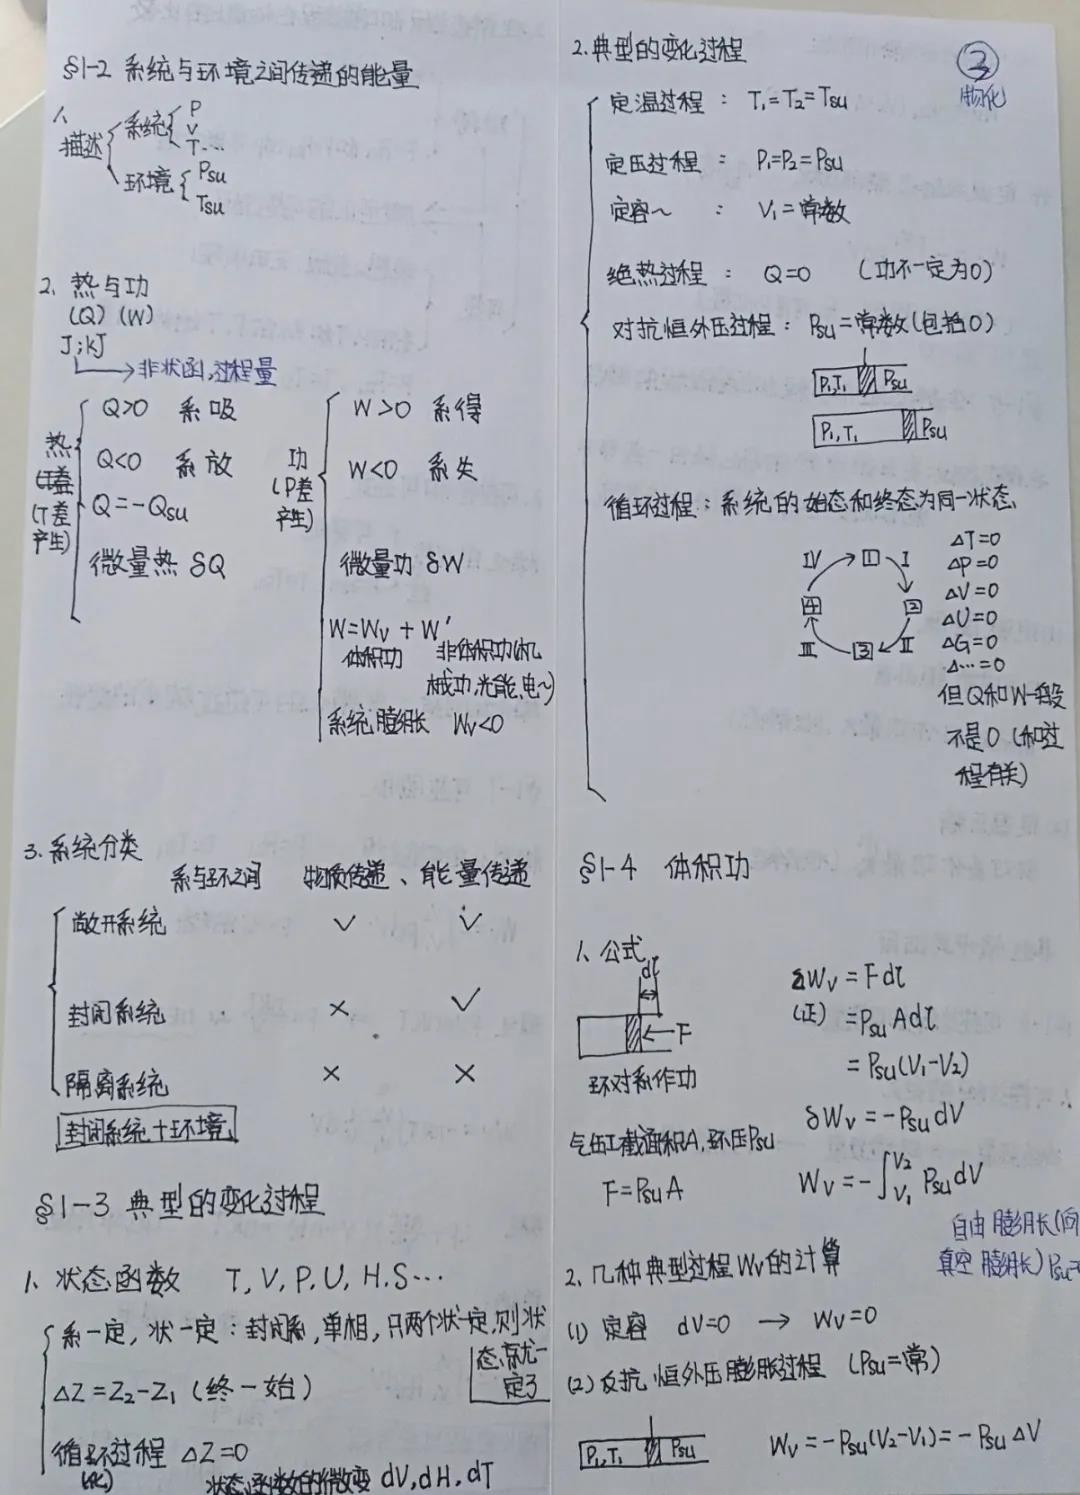 §1-2 系统与环境之间传递的能量
1、
描述 系统 P
V
T…
环境 Psu
Tsu
2、热与功
(Q) (W)
J;kJ
→非状函,过程量
热
(T差
产生)
Q>0 系吸
Q<0 系放
Q=-Qsu
微量热 δQ
功
(P差
产生)
W>0 系得
W<0 系失
微量功 δW
W=Wv + W'
体积功 非体积功(机
械功,光能,电~)
系统膨胀 Wv<0
3、系统分类
系与环之间 物质传递、能量传递
敞开系统 ✓ ✓
封闭系统 × ✓
隔离系统 × ×
封闭系统+环境
§1-3 典型的变化过程
1、状态函数 T,V,P,U,H,S…
系一定,状一定:封闭系,单相,只两个状一定,则状
态就一
定了
ΔZ=Z2-Z1 (终-始)
循环过程 ΔZ=0
状态函数的微变 dV,dH,dT
③
物化
2.典型的变化过程
定温过程: T1=T2=Tsu
定压过程: P1=P2=Psu
定容~: V1=常数
绝热过程: Q=0 (功不一定为0)
对抗恒外压过程: Psu=常数(包括0)
P1,T1 Psu
P1,T1 Psu
循环过程:系统的始态和终态为同一状态、
IV → 1 I
四 2
III 3 ← II
ΔT=0
ΔP=0
ΔV=0
ΔU=0
ΔG=0
Δ…=0
但Q和W一般
不是0(和过
程有关)
§1-4 体积功
1、公式
dl
F
环对系作功
气缸截面积A,环压Psu
F=PsuA
Wv=Fdl
(正) =PsuAdl
=Psu(V1-V2)
δWv=-PsudV
Wv=-∫V1V2 PsudV
自由膨胀(向
真空膨胀)Psu=
2、几种典型过程Wv的计算
(1) 定容 dV=0 → Wv=0
(2)反抗恒外压膨胀过程 (Psu=常)
P1,T1 Psu
Wv=-Psu(V2-V1)=-PsuΔV